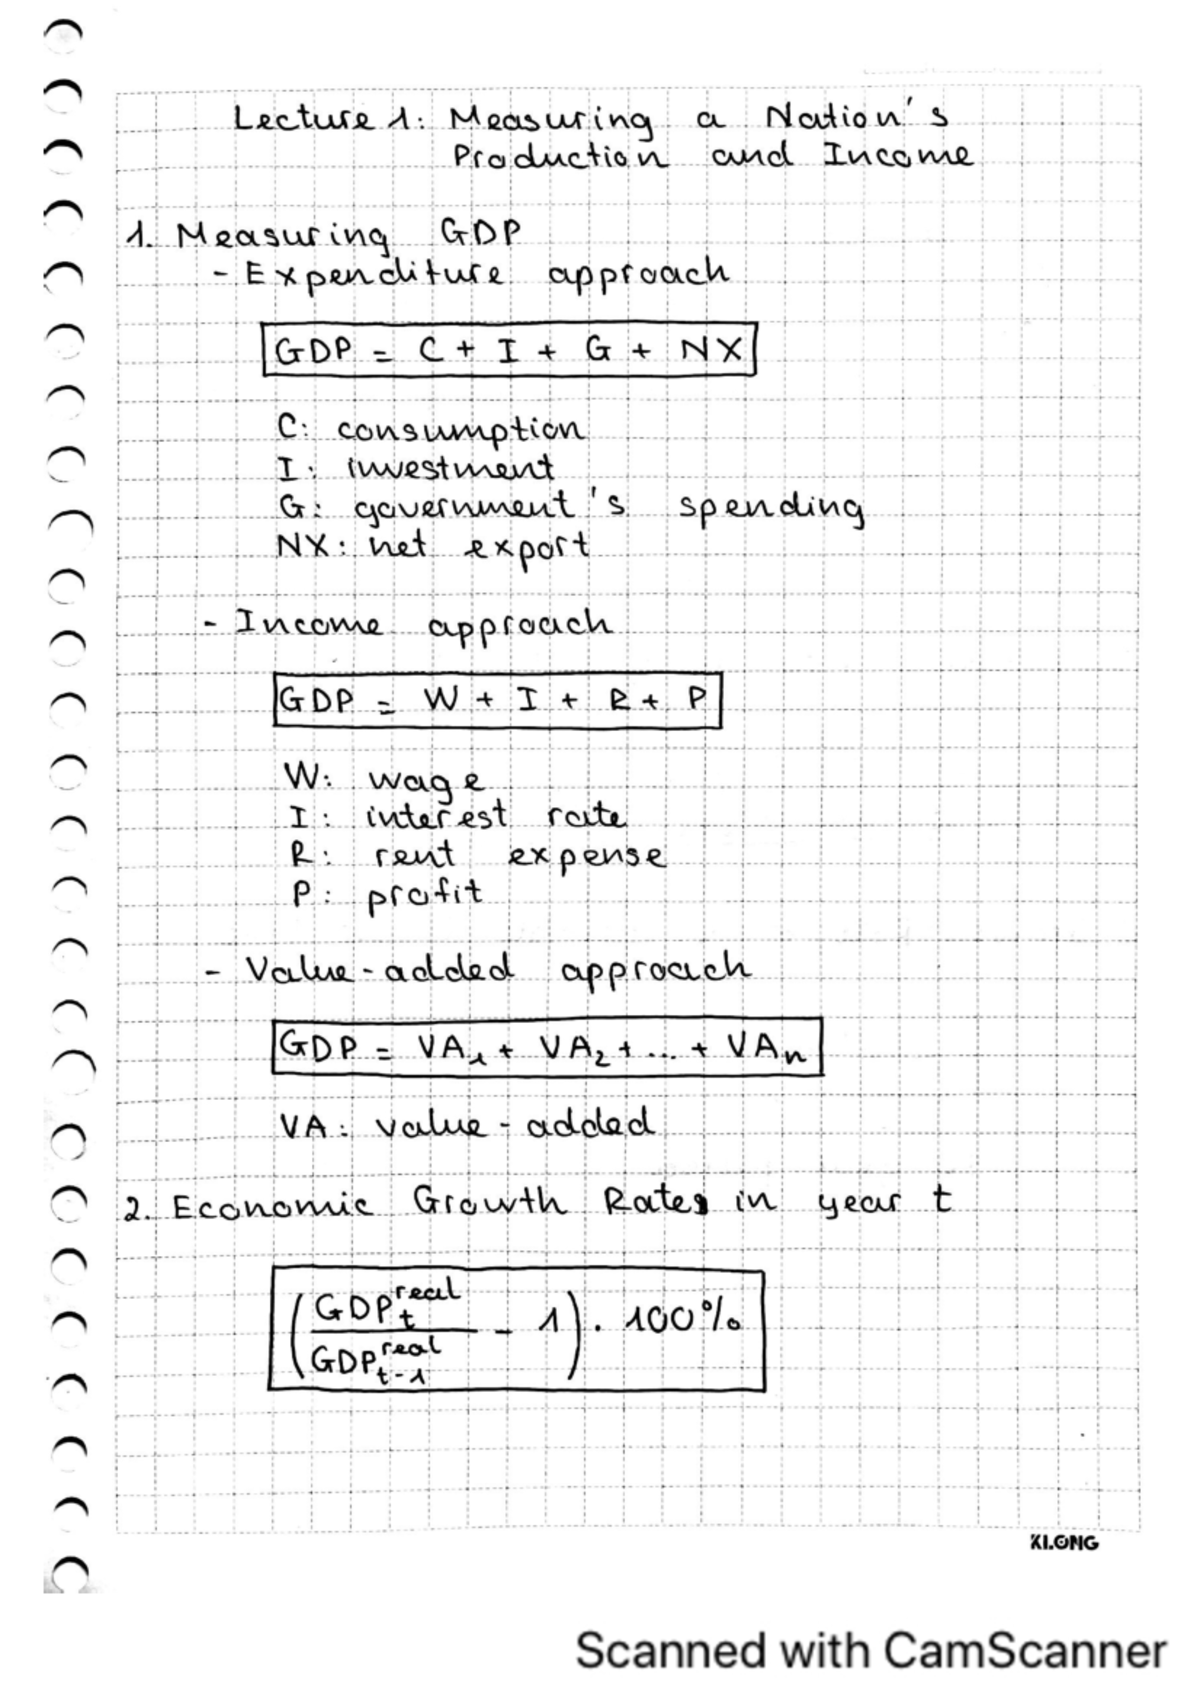 Lecture 1: Measuring a Nation's
Production and Income
1. Measuring GDP
- Expenditure approach
GDP = C + I + G + NX
C: consumption
I: investment
G: government's spending
NX: net export
- Income approach
GDP = W + I + R + P
W: wage
I: interest rate
R: rent expense
P: profit
- Value-added approach
GDP = VA₁ + VA₂ + ... + VAₙ
VA: value-added
2. Economic Growth Rates in year t
(GDPₜ^real / GDPₜ₋₁^real - 1) . 100%
KLONG
Scanned with CamScanner